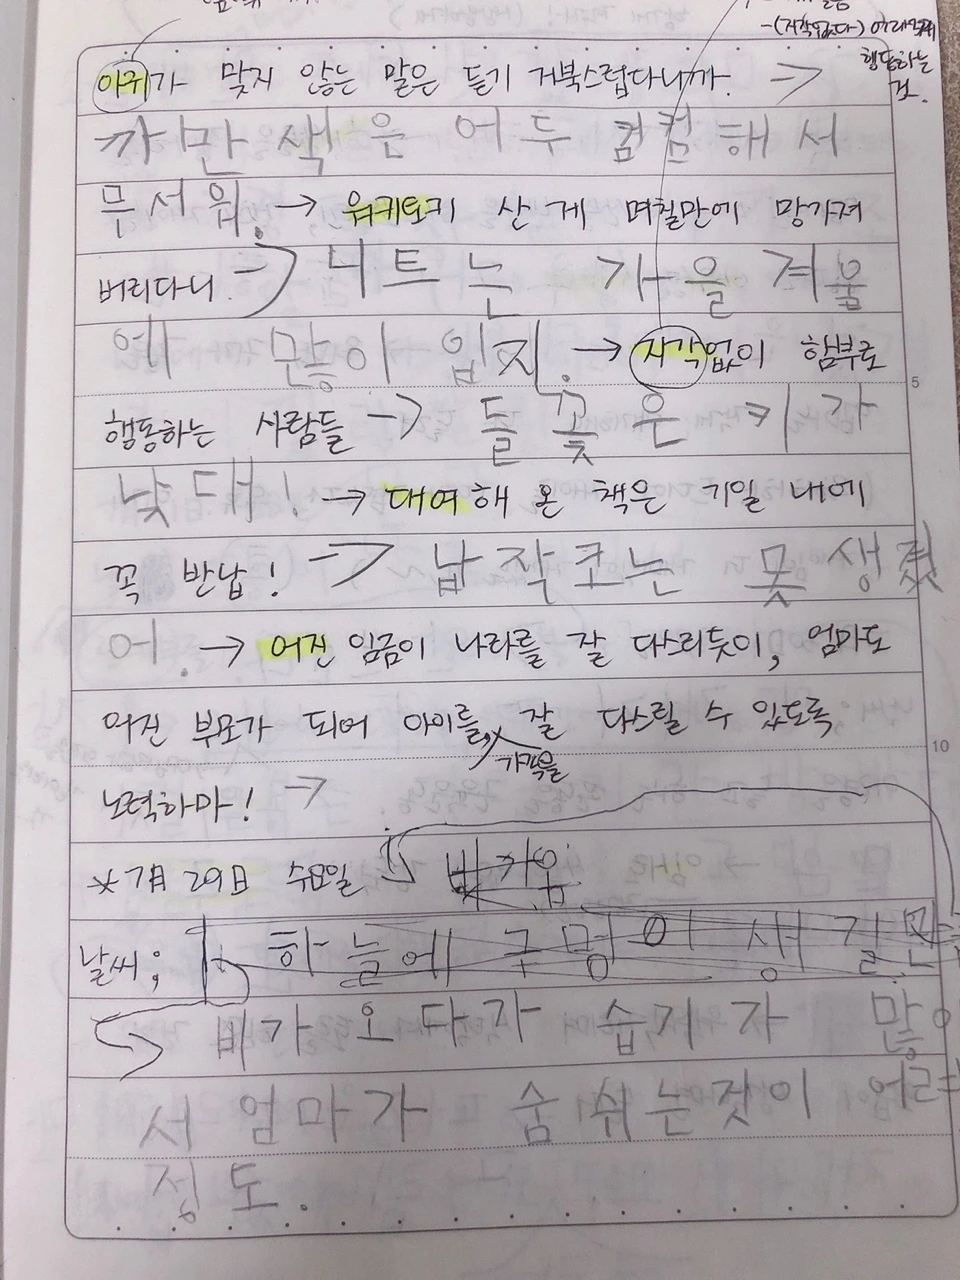 -(지각없다)
행동하는
것.
아귀가 맞지 않는 말은 듣기 거북스럽다니까. →
까만색은 어두컴컴해서
무서워. → 워키토키 산 게 며칠만에 망가져
버리다니. → 니트는 가을 겨울
에 많이 입지. → 지각없이 함부로
행동하는 사람들 → 들꽃은 키가
낮다! → 대여해 온 책은 기일 내에
꼭 반납! → 납작코는 못생겼
어. → 어진 임금이 나라를 잘 다스리듯이, 엄마도
어진 부모가 되어 아이를, 잘 다스릴 수 있도록
가족을
노력하마! →
* 7月 29日 수요일
날씨; 하늘에 구멍이 생길
비가 오다가 습기가 많아
서 엄마가 숨 쉬는 것이
정도.